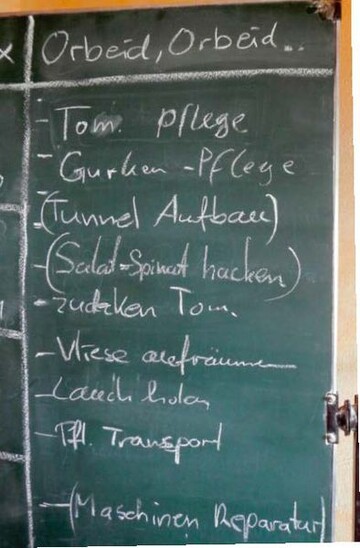 Orbeid, Orbeid...
- Tom. pflege
- Gurken - Pflege
- (Tunnel Aufbau)
- (Salat=Spinat hacken)
- zudeken Tom.
- Vliese aufräumen
- Lauch holen
- Pfl. Transport
- (Maschinen Reparatur)